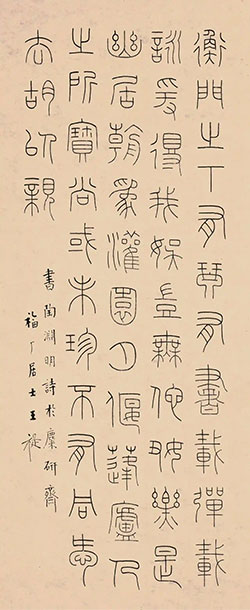 衡門之下有琴有書載彈載
詠爰得我娛豈無他好樂是
幽居朝爲灌園夕偃蓬廬人
之所寶尚或未珍不有同愛
云胡以親
書陶淵明詩於麋研齋
福厂居士王禔